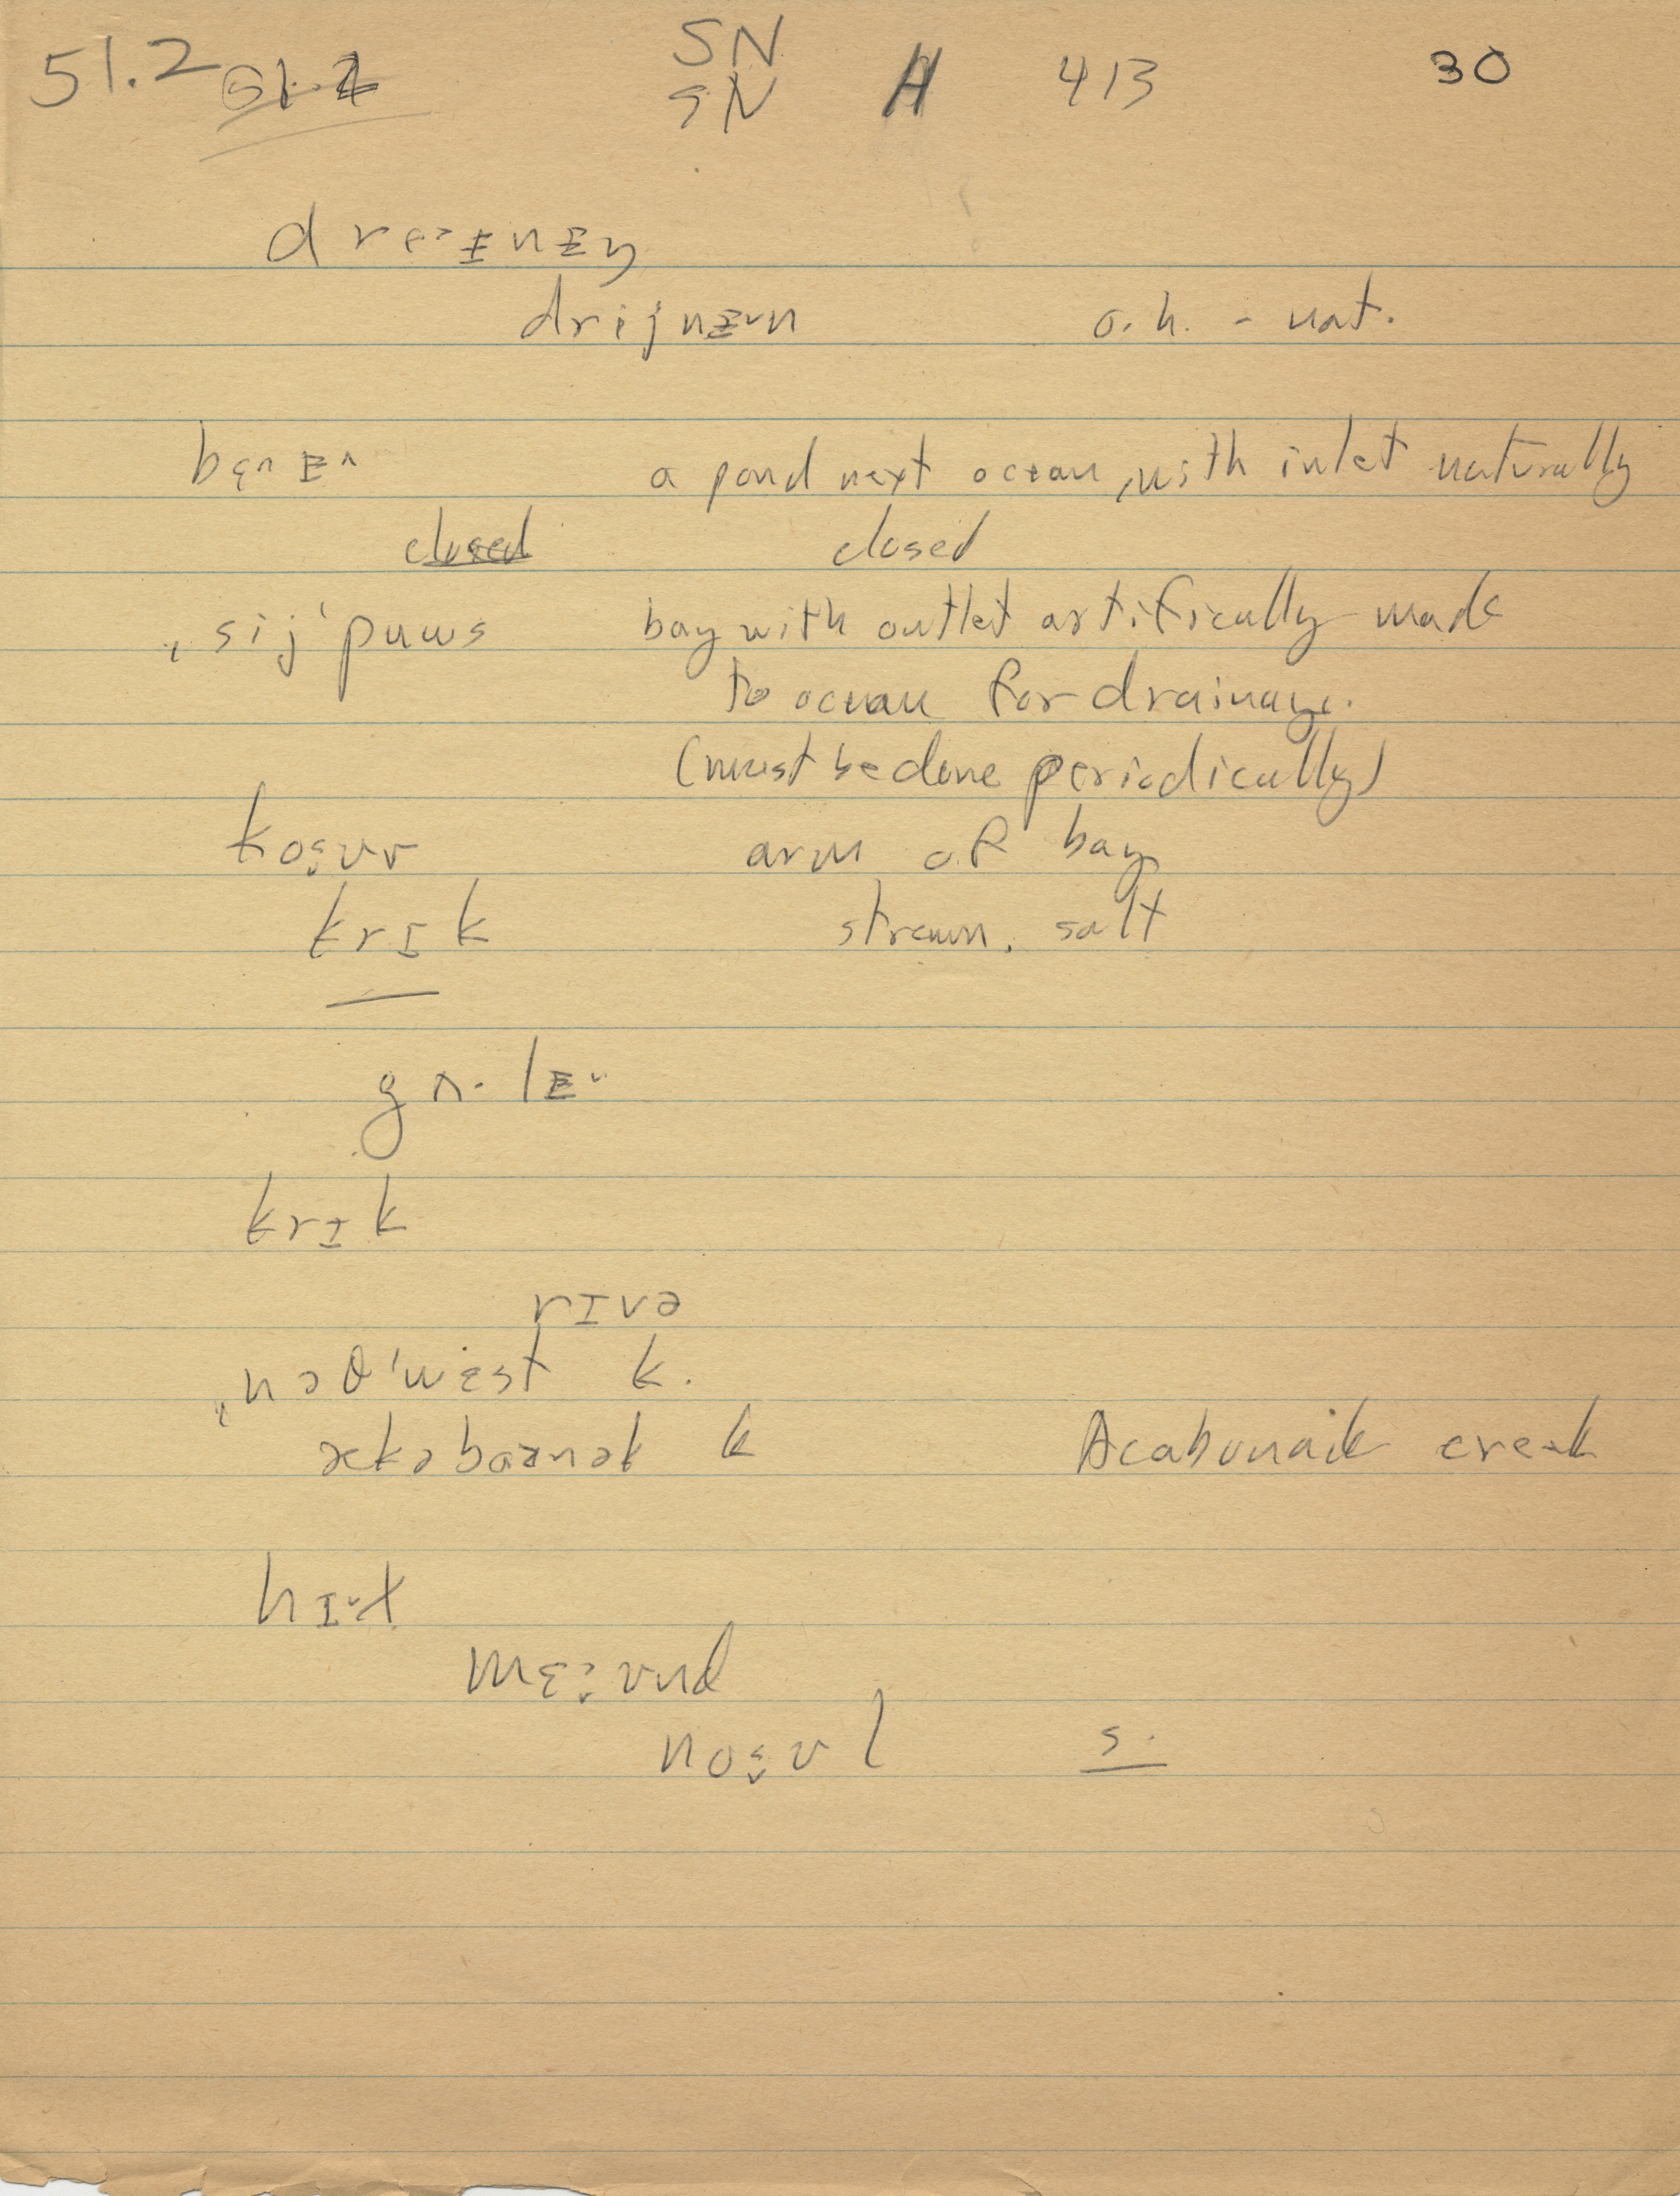 51.2 SN A 413 30
SN
dre˃ɪnɪŋ
drijnɪ˅n o.h. - nat.
a pond next ocean, with inlet naturally
closed closed
ˌsijˈpuws bay with outlet artifically made
to ocean for drainage.
(must be done periodically)
arm of bay
krɪk stream, salt
gʌ·lɪ˅
krɪk
rɪvə
ˌnɔθˈwɛst k.
k Acabonaik creek
hɪ˅l
s.